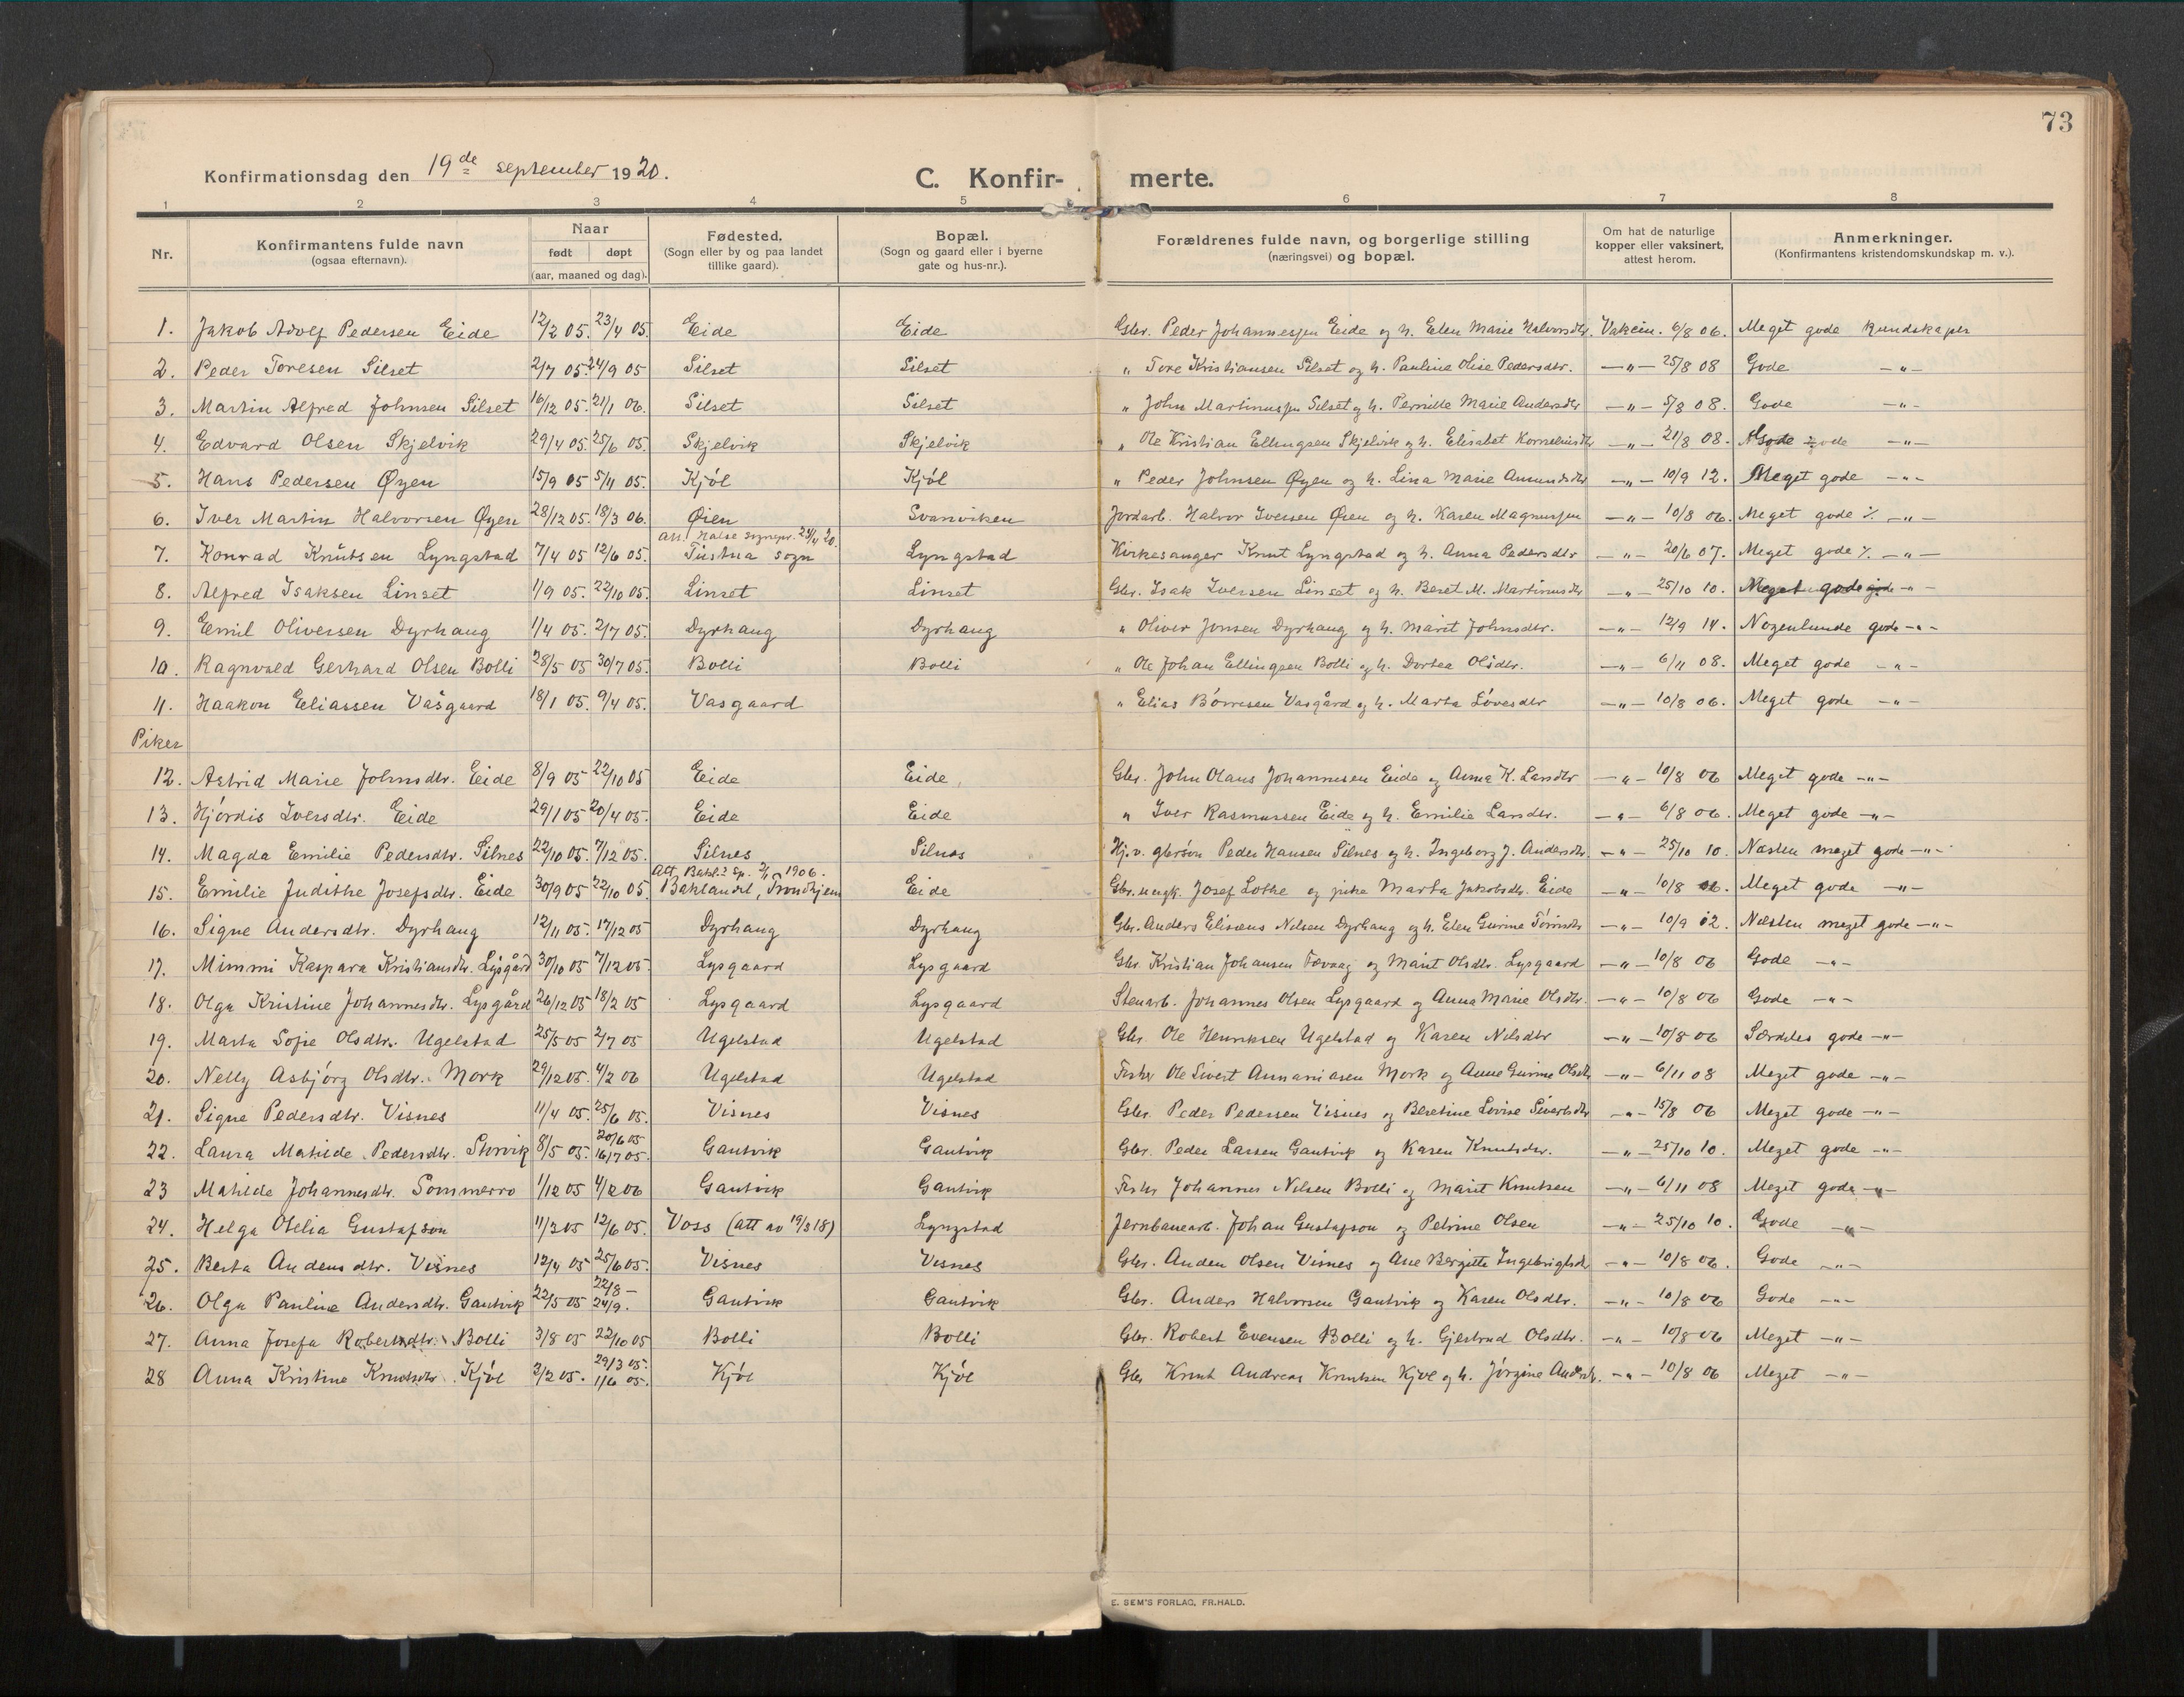 73
Konfirmationsdag den 19de september 1920.
C. Konfir- merte.
1 2 3 4 5 6 7 8
Nr.
Konfirmantens fulde navn
(ogsaa efternavn).
Naar
født døpt
(aar, maaned og dag).
Fødested.
(Sogn eller by og paa landet
tillike gaard).
Bopæl.
(Sogn og gaard eller i byerne
gate og hus-nr.).
Forældrenes fulde navn, og borgerlige stilling
(næringsvei) og bopæl.
Om hat de naturlige
kopper eller vaksinert,
attest herom.
Anmerkninger.
(Konfirmantens kristendomskundskap m. v.).
1. Jakob Adolf Pedersen Eide 12/2 05. 23/4 05. Eide Eide Gbr. Peder Johannessen Eide og h. Elen Marie Halvorsdtr. Vakcin. 6/8 06. Meget gode kundskaper
2. Peder Toresen Silset 2/7 05. 24/9 05 Silset Silset " Tore Kristiansen Silset og h. Pauline Olise Pedersdtr. —"— 25/8 08 Gode —"—
3. Martin Alfred Johnsen Silset 16/12 05. 21/1 06. Silset Silset " John Martinussen Silset og h. Pernille Marie Andersdtr —"— 5/8 08. Gode —"—
4. Edvard Olsen Skjelvik 29/4 05. 25/6 05. Skjelvik Skjelvik " Ole Kristian Ellingsen Skjelvik og h. Elisabet Korneliusdtr —"— 21/8 08. gode —"—
5. Hans Pedersen Øyen 15/9 05 5/11 05. Kjöl Kjöl " Peder Johnsen Øyen og h. Lina Marie Amundsdtr —"— 10/9 12. Meget gode —"—
6. Iver Martin Halvorsen Øyen 28/12 05. 18/3 06. Øien Svanviken Jordarb. Halvor Iversen Øien og h. Karen Magnussen —"— 10/8 06. Meget gode % —"—
att. Halse sognepr. 23/4 20.
7. Konrad Knutsen Lyngstad 7/4 05 12/6 05. Tustna sogn Lyngstad Kirkesanger Knut Lyngstad og h. Anna Pedersdtr —"— 20/6 07. Meget gode % —"—
8. Alfred Isaksen Linset 1/9 05. 22/10 05. Linset Linset Gbr. Isak Iversen Linset og h. Beret M. Martinusdtr —"— 25/10 10. Meget gode gode —"—
9. Emil Oliversen Dyrhaug 1/4 05. 2/7 05. Dyrhaug Dyrhaug " Oliver Jonsen Dyrhaug og h. Marit Johnsdtr. —"— 12/9 14. Nogenlunde gode —"—
10. Ragnvald Gerhard Olsen Bolli 28/5 05 30/7 05. Bolli Bolli " Ole Johan Ellingsen Bolli og h. Dortea Olsdtr. —"— 6/11 08. Meget gode —"—
11. Haakon Eliassen Vasgaard 18/1 05. 9/4 05. Vasgaard " Elias Börresen Vasgård og h. Marta Lövesdtr —"— 10/8 06. Meget gode —"—
Piker
12. Astrid Marie Johnsdtr. Eide 8/9 05 22/10 05 Eide Eide Gbr. John Olaus Johannesen Eide og Anna K. Larsdtr —"— 10/8 06 Meget gode —"—
13. Hjördis Iversdtr. Eide 29/1 05 20/4 05. Eide Eide " Iver Rasmussen Eide og h. Emilie Larsdtr. —"— 6/8 06. Meget gode —"—
14. Magda Emilie Pedersdtr. Silnes 22/10 05. 7/12 05. Silnes Silnes Hj.v. gbrsön Peder Hansen Silnes og h. Ingeborg J. Andersdtr. —"— 25/10 10. Næsten meget gode —"—
1906.
15. Emilie Judithe Josefsdtr. Eide 30/9 05 22/10 05. Baklandet, Trondhjem Eide Gbr. ungk. Josef Lothe og pike Marta Jakobsdtr. Eide —"— 10/8 06. Meget gode —"—
16. Signe Andersdtr. Dyrhaug 12/11 05. 17/12 05 Dyrhaug Dyrhaug Gbr. Anders Eliseus Nilsen Dyrhaug og h. Elen Gurine —"— 10/9 12. Næsten meget gode —"—
17. Mimmi Kaspara Kristiansdtr. Lysgård 30/10 05 7/12 05 Lysgaard Lysgaard Gbr. Kristian Johansen og Marit Olsdtr. Lysgaard —"— 10/8 06 Gode —"—
18. Olga Kristine Johannesdtr. Lysgård 26/12 05 18/2 05 Lysgaard Lysgaard Stenarb. Johannes Olsen Lysgaard og Anna Marie Olsdtr. —"— 10/8 06 Gode —"—
19. Marta Sofie Olsdtr. Ugelstad 25/5 05 2/7 05 Ugelstad Ugelstad Gbr. Ole Henriksen Ugelstad og Karen Nilsdtr —"— 10/8 06 Særdeles gode —"—
20. Nelly Asbjörg Olsdtr. Mork 29/12 05. 4/2 06 Ugelstad Ugelstad Fisker Ole Sivert Annaniasen Mork og Anne Gurine Olsdtr —"— 6/11 08 Meget gode —"—
21. Signe Pedersdtr. Visnes 11/4 05. 25/6 05. Visnes Visnes Gbr. Peder Pedersen Visnes og Beretine Lovise Sivertsdtr —"— 15/8 06 Meget gode —"—
22. Laura Matilde Pedersdtr. Storvik 8/5 05. 20/6 05 16/7 05. Gautvik Gautvik Gbr. Peder Larsen Gautvik og Karen Knutsdtr. —"— 25/10 10. Meget gode —"—
23 Matilde Johannesdtr. Sommerro 1/12 05 4/2 06 Gautvik Gautvik Fisker Johannes Nilsen Bolli og Marit Knutsen —"— 6/11 08 Meget gode —"—
24. Helga Otelia Gustafson 11/3 05 12/6 05. Voss (att av 19/3 18) Lyngstad Jernbanearb. Johan Gustafson og Petrine Olsen —"— 25/10 10. Gode —"—
25. Berta Andersdtr. Visnes 12/4 05 25/6 05. Visnes Visnes Gbr. Anders Olsen Visnes og Ane Bergitte Ingebrigtsdtr —"— 10/8 06. Gode —"—
26. Olga Pauline Andersdtr. Gautvik 22/5 05 22/8 — 24/9. Gautvik Gautvik Gbr. Anders Halvorsen Gautvik og Karen Olsdtr. —"— 10/8 06 Gode —"—
27. Anna Josefa Robertsdtr. Bolli 3/8 05 22/10 05 Bolli Bolli Gbr. Robert Evensen Bolli og h. Gjertrud Olsdtr. —"— 10/8 06 Meget —"—
28 Anna Kristine Knutsdtr. Kjöl 3/2 05. 29/3 05. 1/6 05. Kjöl Kjöl Gbr Knut Andreas Knutsen Kjöl og h. Jörgine Andersdtr. —"— 10/8 06 Meget —"—
E. SEM'S FORLAG, FR.HALD.